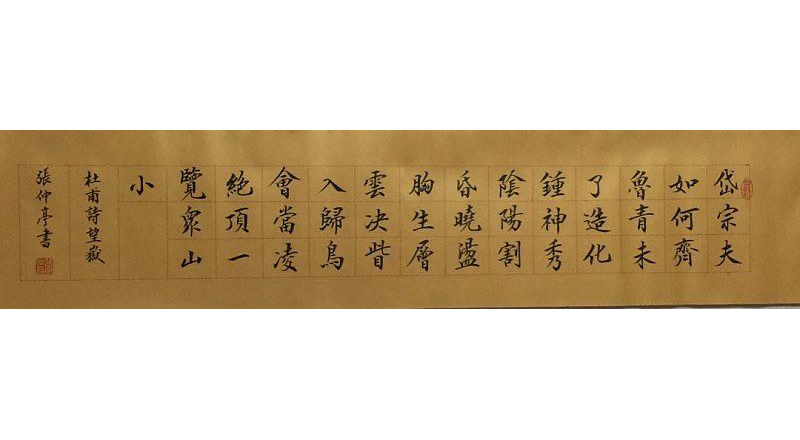 岱宗夫
如何齊
魯青未
了造化
鍾神秀
陰陽割
昏曉盪
胸生層
雲决眥
入歸鳥
會當凌
絶頂一
覽衆山
小
杜甫詩望嶽
張仲亭書